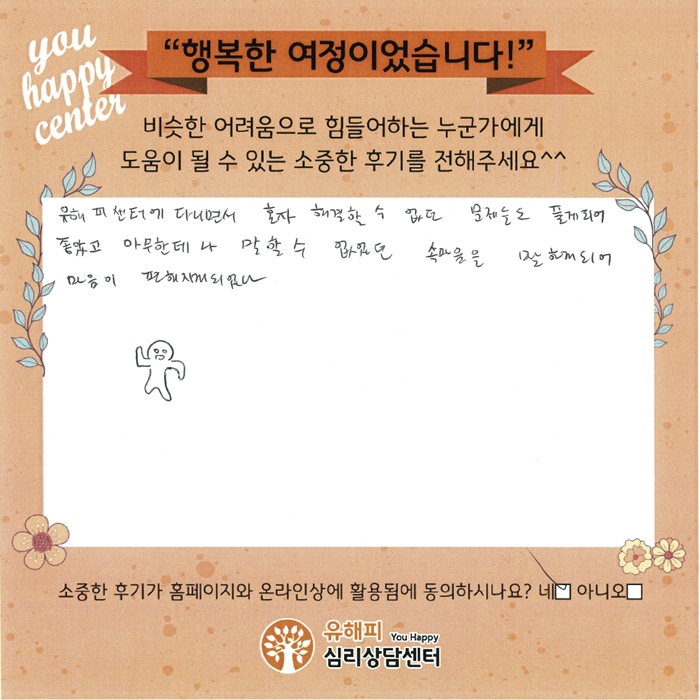 you
happy
center
“행복한 여정이었습니다!”
비슷한 어려움으로 힘들어하는 누군가에게
도움이 될 수 있는 소중한 후기를 전해주세요^^
유해피센터에 다니면서 혼자 해결할 수 없던 문제들도 풀게되어
좋았고 아무한테나 말할 수 없었던 속마음을 말하게되어
마음이 편해지게되었다
소중한 후기가 홈페이지와 온라인상에 활용됨에 동의하시나요? 네 아니오
유해피 You Happy
심리상담센터